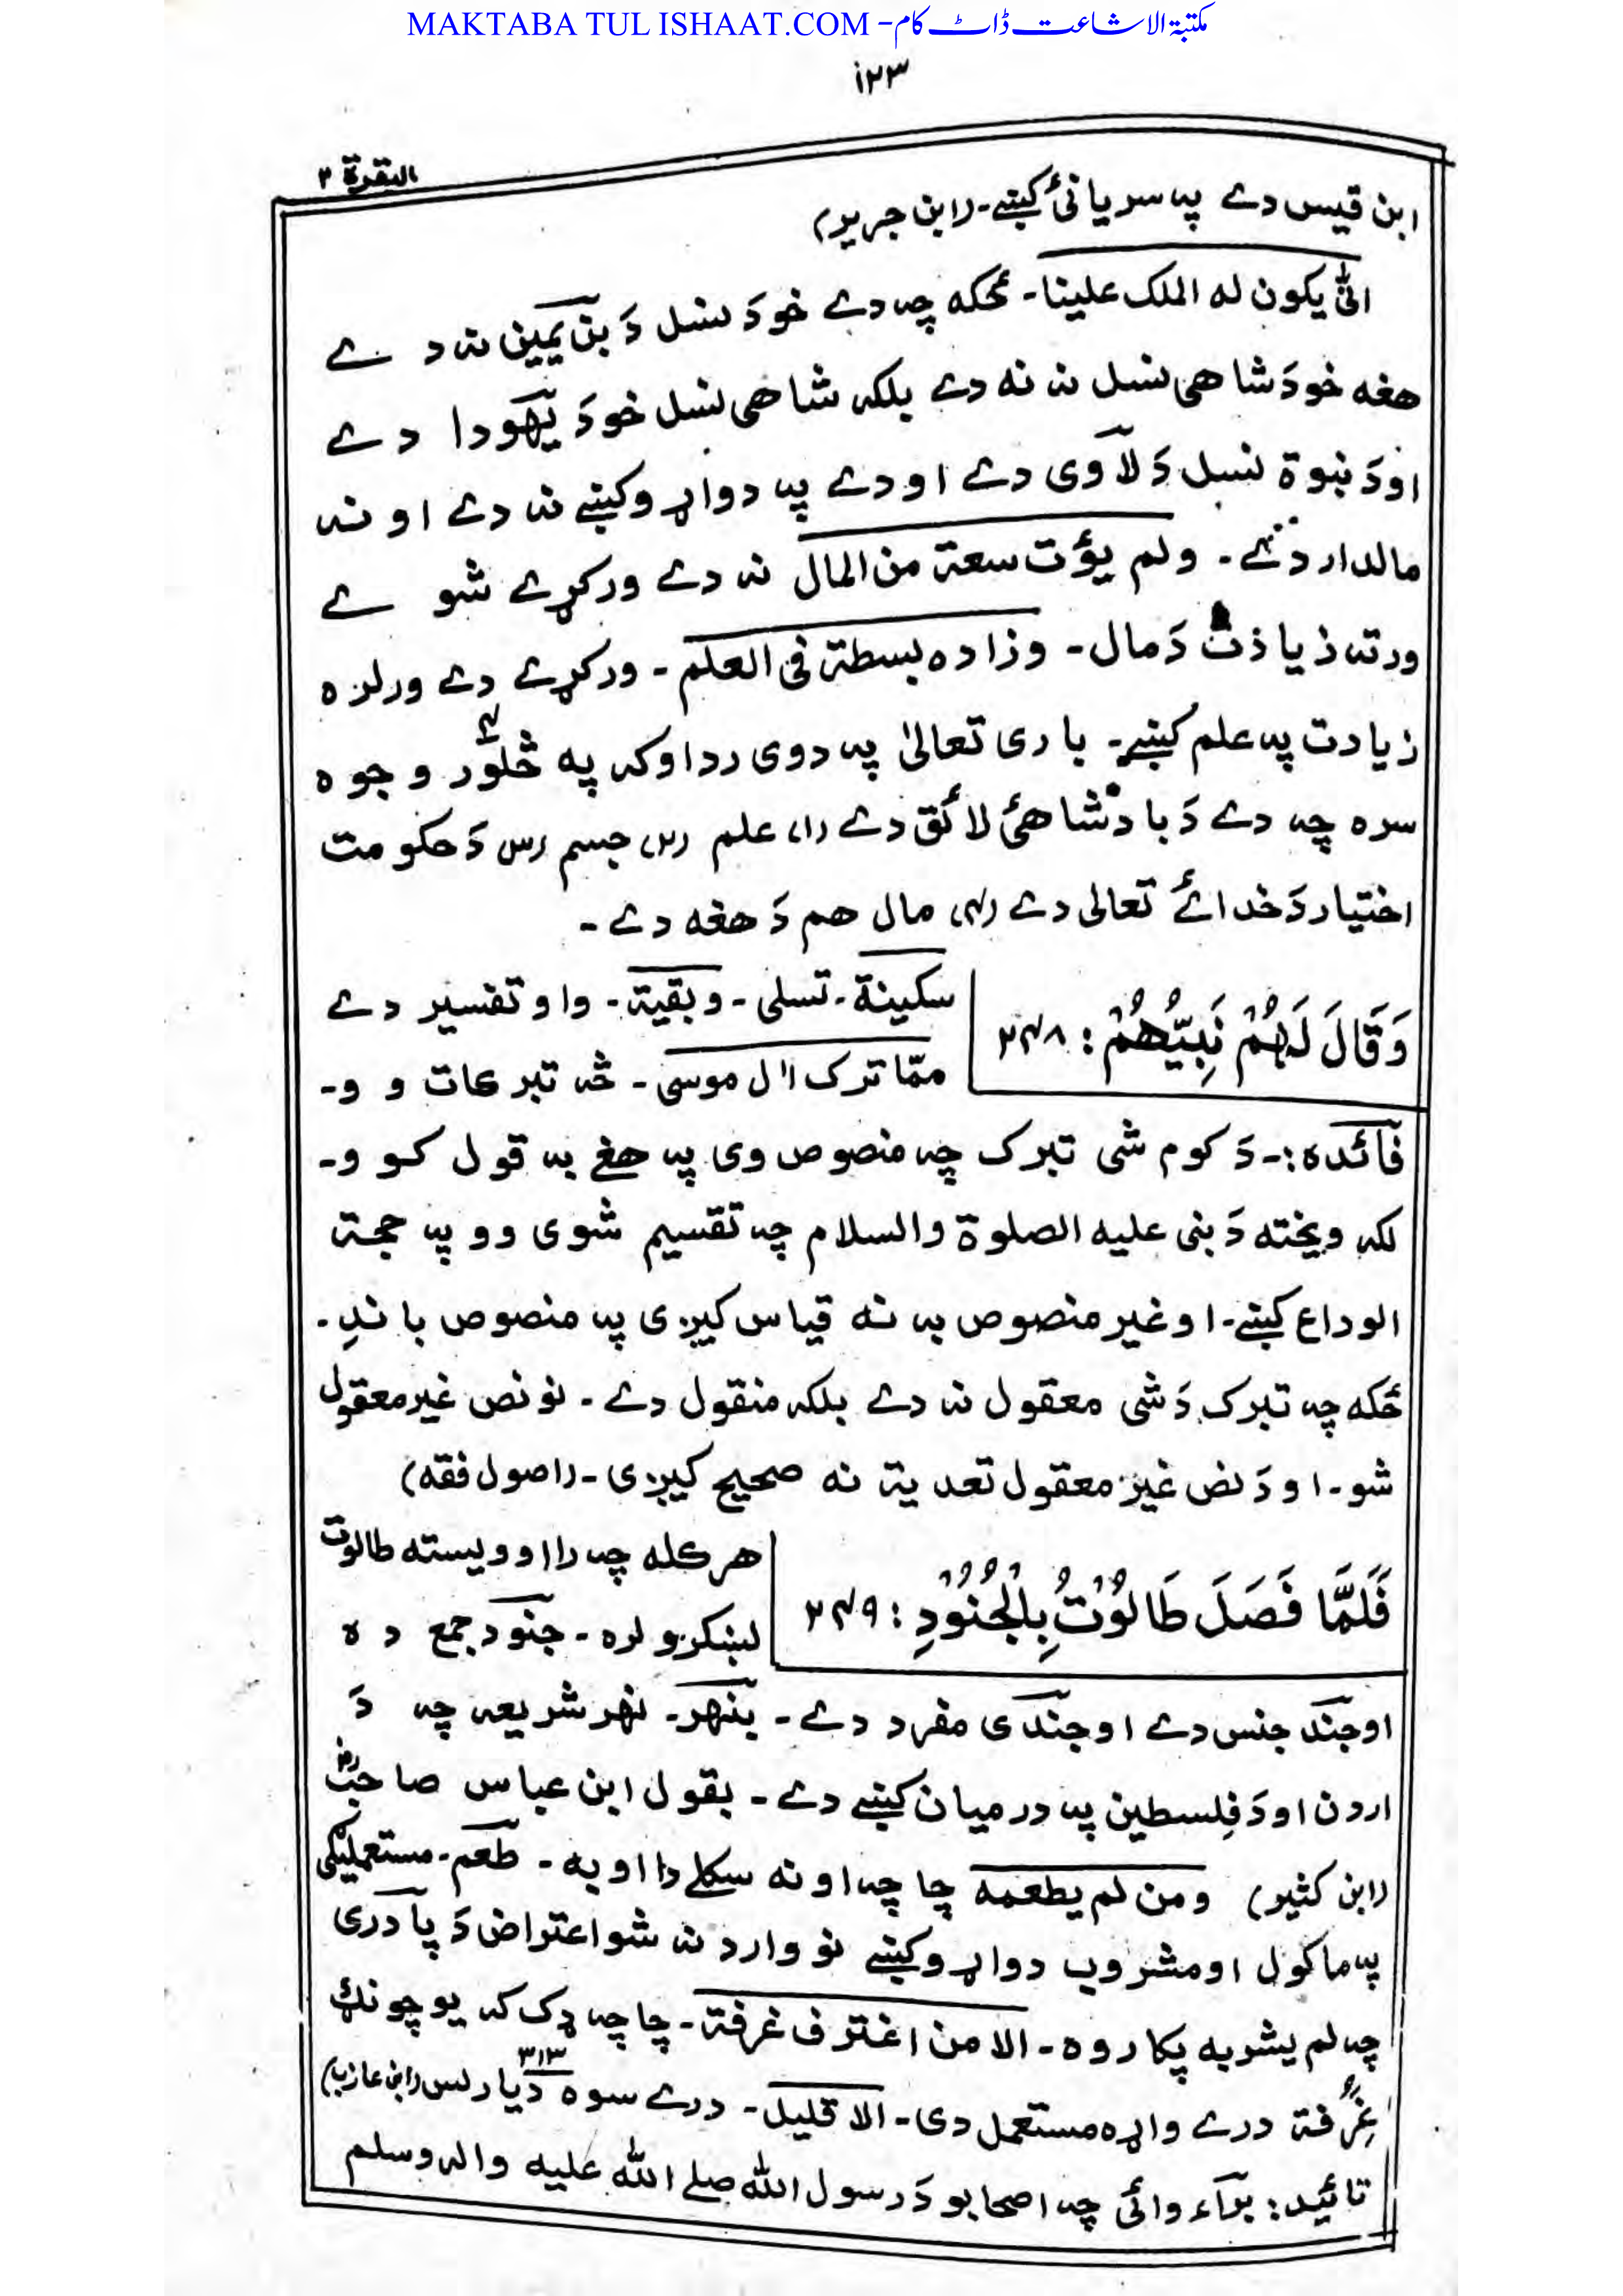 MAKTABA TUL ISHAAT.COM - مکتبة الاشاعت ڈاٹ کام
۱۲۳
البقرة ۲
ابن قیس دے پہ سریانیٔ کښے۔ (ابن جریر)
انّٰی یکون لہ الملک علینا۔ ځکه چہ دے خو دَ نسل دَ بن یمین نہ دے
هغه خو دَ شاهی نسل نہ نه دے بلکہ شاهی نسل خو دَ یَهودا دے
او دَ نبوة نسل دَ لاوی دے او دے پہ دواړو کښے نہ دے او نہ
مالدار دے۔ ولم یؤت سعة من المال نہ دے ورکړے شوے
ورتہ زیاذت دَ مال۔ وزاده بسطة فی العلم۔ ورکړے دے ورلرہ
زیادت پہ علم کښے۔ باری تعالیٰ پہ دوی ردا وکہ په څلور وجوہ
سره چہ دے دَ بادشاهیٔ لائق دے (۱) علم (۲) جسم (۳) دَ حکومت
اختیار دَ خدائے تعالی دے (۴) مال هم دَ هغه دے۔
وَقَالَ لَهُمْ نَبِيُّهُمْ : ۲۴۸
سکینة۔ تسلی۔ وبقیة۔ واو تفسیر دے
ممّا ترک اٰل موسی۔ څہ تبرکات وو۔
فائدہ:۔ دَ کوم شی تبرک چہ منصوص وی پہ هغے بہ قول کوو۔
لکہ ویختہ دَ نبی علیه الصلوة والسلام چہ تقسیم شوی وو پہ حجة
الوداع کښے۔ او غیر منصوص بہ نہ قیاس کیږی پہ منصوص باندِ۔
ځکه چہ تبرک دَ شی معقول نہ دے بلکہ منقول دے۔ نو نص غیر معقول
شو۔ او دَ نص غیر معقول تعدیة نہ صحیح کیږی۔ (اصول فقه)
فَلَمَّا فَصَلَ طَالُوْتُ بِالْجُنُوْدِ : ۲۴۹
هر کله چہ را اوویستہ طالوت
لښکرو لرہ۔ جنود جمع دہ
او جند جنس دے او جندی مفرد دے۔ بنهر۔ نهر شریعہ چہ دَ
اردن او دَ فلسطین پہ درمیان کښے دے۔ بقول ابن عباس صاحبؓ
(ابن کثیر) ومن لم یطعمه چا چہ او نہ سکلے دا اوبہ۔ طعم۔ مستعملیگی
پہ ماکول او مشروب دواړو کښے نو وارد نہ شو اعتراض دَ پادری
چہ لم یشربه پکار وہ۔ الا من اغترف غرفة۔ چا چہ ډک کہ یو چونگ
غِرُفة درے واړہ مستعمل دی۔ الا قلیل۔ درے سوہ دیارلس ۳۱۳ (ابن عازب)
تائید: براء وائی چہ اصحابو دَ رسول اللّٰه صلے اللّٰه علیه واله وسلم